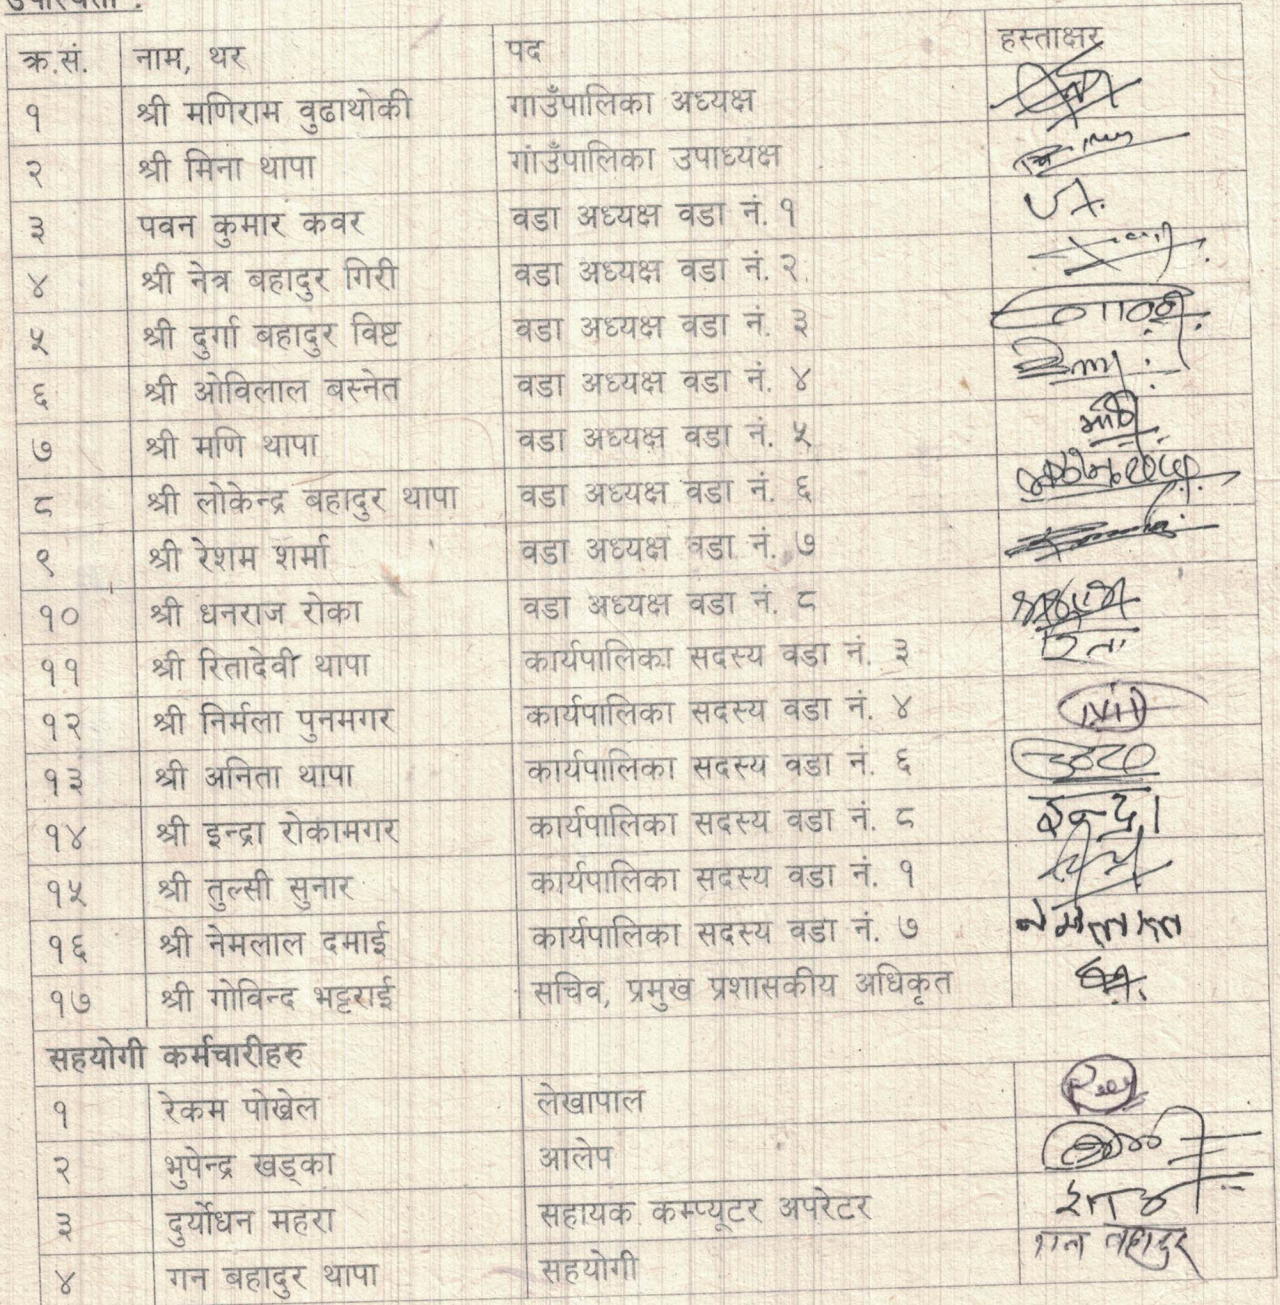 उपस्थिती :
क्र.सं. नाम, थर पद हस्ताक्षर
१ श्री मणिराम वुढाथोकी गाउँपालिका अध्यक्ष
२ श्री मिना थापा गांउँपालिका उपाध्यक्ष
३ पवन कुमार कवर वडा अध्यक्ष वडा नं. १
४ श्री नेत्र बहादुर गिरी वडा अध्यक्ष वडा नं. २
५ श्री दुर्गा बहादुर विष्ट वडा अध्यक्ष वडा नं. ३
६ श्री ओविलाल बस्नेत वडा अध्यक्ष वडा नं. ४
७ श्री मणि थापा वडा अध्यक्ष वडा नं. ५
८ श्री लोकेन्द्र बहादुर थापा वडा अध्यक्ष वडा नं. ६
९ श्री रेशम शर्मा वडा अध्यक्ष वडा नं. ७
१० श्री धनराज रोका वडा अध्यक्ष वडा नं. ८
११ श्री रितादेवी थापा कार्यपालिका सदस्य वडा नं. ३
१२ श्री निर्मला पुनमगर कार्यपालिका सदस्य वडा नं. ४
१३ श्री अनिता थापा कार्यपालिका सदस्य वडा नं. ६
१४ श्री इन्द्रा रोकामगर कार्यपालिका सदस्य वडा नं. ८ इन्द्रा
१५ श्री तुल्सी सुनार कार्यपालिका सदस्य वडा नं. १
१६ श्री नेमलाल दमाई कार्यपालिका सदस्य वडा नं. ७
१७ श्री गोविन्द भट्टराई सचिव, प्रमुख प्रशासकीय अधिकृत
सहयोगी कर्मचारीहरु
१ रेकम पोख्रेल लेखापाल
२ भुपेन्द्र खड्का आलेप
३ दुर्योधन महरा सहायक कम्प्यूटर अपरेटर
४ गन बहादुर थापा सहयोगी गन बहादुर